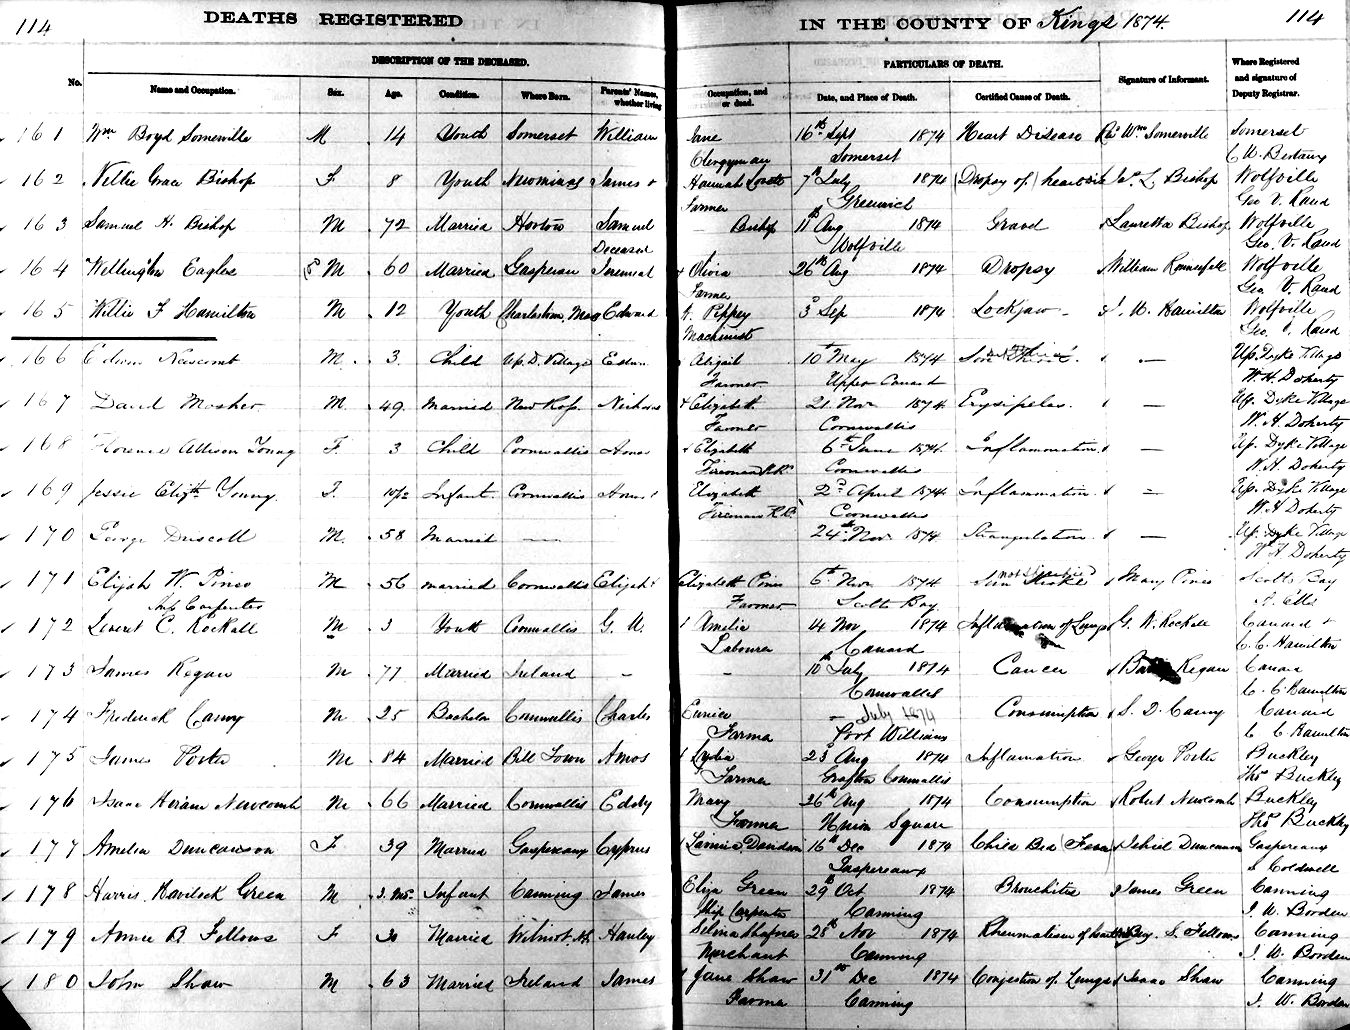 114 DEATHS REGISTERED IN THE COUNTY OF Kings 1874. 114
DESCRIPTION OF THE DECEASED. PARTICULARS OF DEATH.
No. Name and Occupation. Sex. Age. Condition. Where Born. Parents' Names, whether living Occupation, and or dead. Date, and Place of Death. Certified Cause of Death. Signature of Informant. Where Registered and signature of Deputy Registrar.
161 Wm Boyd Somerville M 14 Youth Somerset William Jane 16th Sept 1874 Heart Disease Wm Somerville Somerset
Clergyman Somerset
162 Nellie Grace Bishop F 8 Youth James + Hannah 7th July 1874 (Dropsy of) heart L. Bishop Wolfville
Farmer Greenwich Geo V. Rand
163 Samuel H. Bishop M 72 Married Horton Samuel Bishop 11th Aug 1874 Gravel Lauretta Bishop Wolfville
Deceased Wolfville Geo. V. Rand
164 Wellington Eagles M 60 Married Gaspereau Jeremiah + Olivia 26th Aug 1874 Dropsy William Wolfville
Farmer Geo V. Rand
165 Willie F Hamilton M 12 Youth Charlestown, Mass Edward Pippey 3d Sep 1874 Lockjaw W. Hamilton Wolfville
Machinist Geo V. Rand
166 Edwin Newcomb M. 3. Child Up. D. Village Edwin Abigail 10th May 1874 — Up. Dyke Village
Farmer Upper Canard W. H. Doherty
167 David Mosher M. 49. Married New Ross. + Elizabeth 21. Nov 1874 Erysipelas. — Up. Dyke Village
Farmer Cornwallis W. H Doherty
168 Florence Allison Young F. 3 Child Cornwallis + Elizabeth 6th June 1874. Inflammation — Up. Dyke Village
Fireman Cornwallis W. H Doherty
169 Jessie Elizth Young. F. Infant Cornwallis Elizabeth 2d April 1874 Inflammation. — Up. Dyke Village
Fireman R.R. Cornwallis W. H Doherty
170 George Driscoll M. 58 Married — 24th Nov 1874 Strangulation. — Up. Dyke Village
W. H Doherty
171 Elijah W. Pineo M 56 married Cornwallis Elijah + Elizabeth Pineo 6th Nov 1874 Mary Pineo Scotts Bay
Ship Carpenter Farmer Scotts Bay
172 C. Rockall M 3 Youth Cornwallis G. W. Amelia 14 Nov 1874 Inflamation of Lungs G. W. Rockall Canard
Labourer Canard C. C. Hamilton
173 James Regan M 77 Married Ireland – – 10th July 1874 Cancer Regan Canard
Cornwallis C. C Hamilton
174 Frederick Canny M 25 Bachelor Cornwallis Charles Eunice – July 1874 Consumption S. D. Canny Canard
Farmer Port Williams C C Hamilton
175 James Porter M 84 Married Bill Town Amos Lydia 23d Aug 1874 Inflamation George Porter Buckley
Farmer Grafton Cornwallis Thos Buckley
176 Isaac Hiram Newcomb M 66 Married Cornwallis Eddy Mary 26th Aug 1874 Consumption Robert Newcomb Buckley
Farmer Union Square Thos Buckley
177 Amelia Duncanson F 39 Married Gaspereaux Cyprus Lavinia Davidson 16th Dec 1874 Child Bed Fever Jehiel Duncanson Gaspereaux
Gaspereaux S Coldwell
178 Harris Havilock Green M 3. mos. Infant Canning James Eliza Green 29th Oct 1874 Bronchitis James Green Canning
Ship Carpenter Canning J. W. Borden
179 Annie B Fellows F 30 Married Wilmot NS Hanley Selina 25th Nov 1874 Rheumatism of heart S. Fellows Canning
Merchant Canning J. W. Borden
180 John Shaw M 63 Married Ireland James Jane Shaw 31st Dec 1874 Congestion of Lungs Isaac Shaw Canning
Farmer Canning J. W. Borden